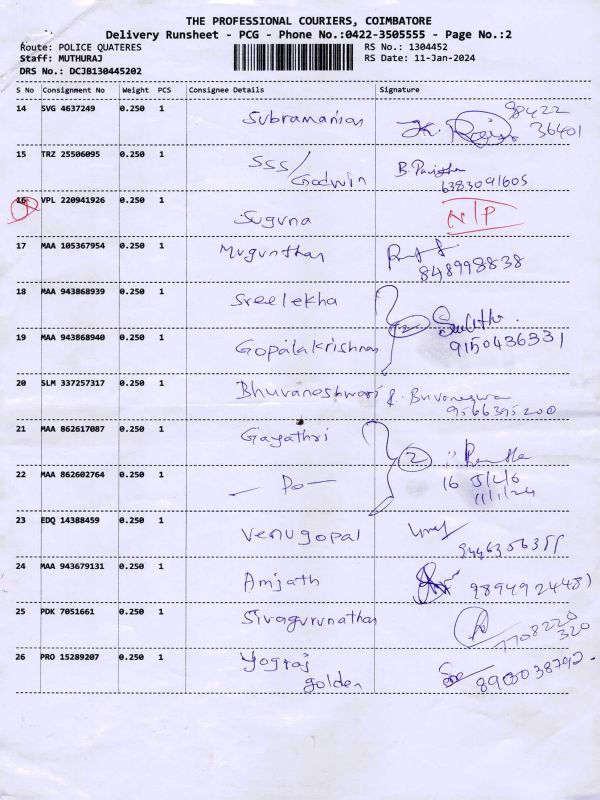 THE PROFESSIONAL COURIERS, COIMBATORE
Delivery Runsheet - PCG - Phone No.:0422-3505555 - Page No.:2
Route: POLICE QUATERES RS No.: 1304452
Staff: MUTHURAJ RS Date: 11-Jan-2024
DRS No.: DCJB130445202
S No Consignment No Weight PCS Consignee Details Signature
14 SVG 4637249 0.250 1 Subramanian 98422
36401
15 TRZ 25506095 0.250 1 SSS/
Godwin 6383091605
16 VPL 220941926 0.250 1 Suguna N/P
17 MAA 105367954 0.250 1 Mugunthan
848998838
18 MAA 943868939 0.250 1 Sreelekha
19 MAA 943868940 0.250 1 Gopalakrishnan 2 9150436331
20 SLM 337257317 0.250 1 Bhuvaneshwari
9566395200
21 MAA 862617087 0.250 1 Gayathri 2
22 MAA 862602764 0.250 1 — Do — 16
11/1/24
23 EDQ 14388459 0.250 1 Venugopal
24 MAA 943679131 0.250 1 Amjath 9894924481
25 PDK 7051661 0.250 1 Sivagurunathan 7708220
320
26 PRO 15289207 0.250 1 Yograj
golden 8903038792